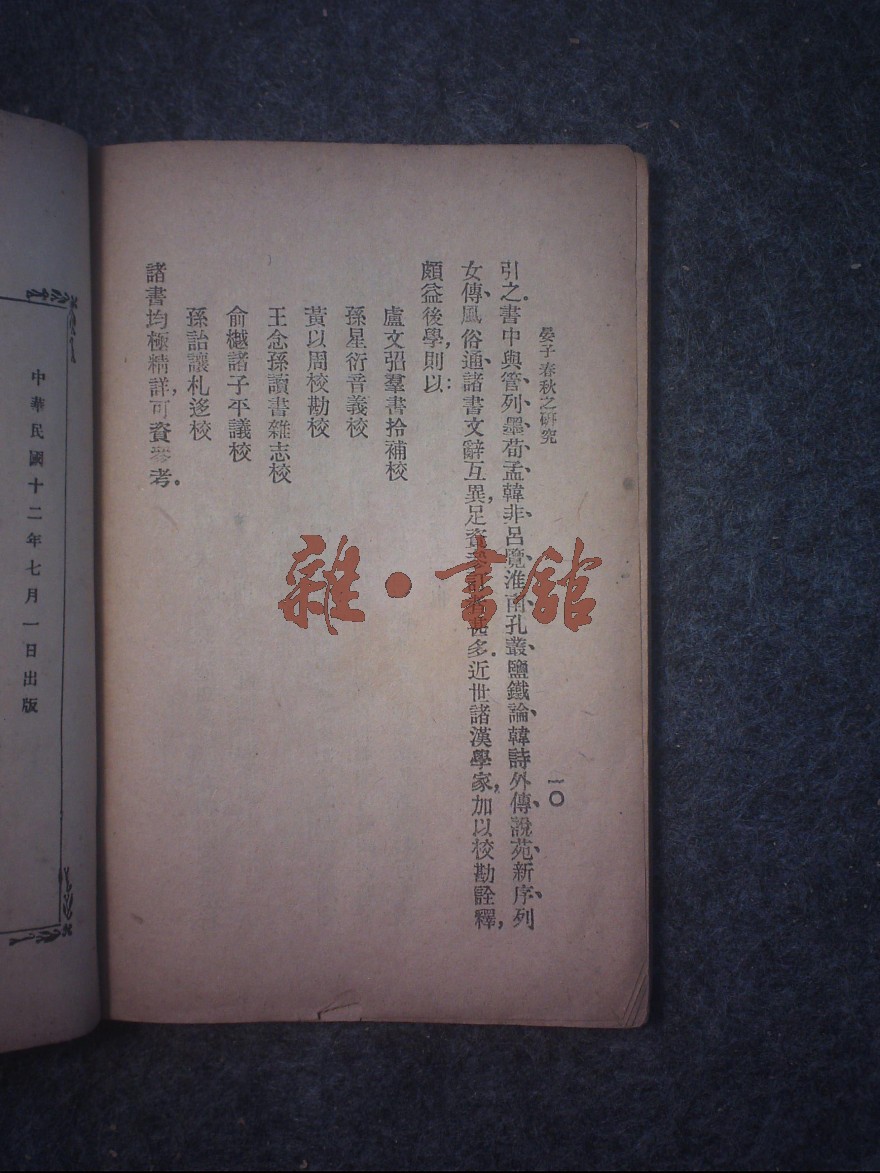 晏子春秋之研究
一〇
引之.書中與管、列、墨、荀、孟、韓非、呂覽、淮南、孔叢、鹽鐵論、韓詩外傳、說苑、新序、列
女傳、風俗通、諸書文辭互異,足資參訂者甚多.近世諸漢學家,加以校勘詮釋,
頗益後學,則以:
盧文弨羣書拾補校
孫星衍音義校
黃以周校勘校
王念孫讀書雜志校
俞樾諸子平議校
孫詒讓札迻校
諸書均極精詳,可資參考.
中華民國十二年七月一日出版
雜·書館